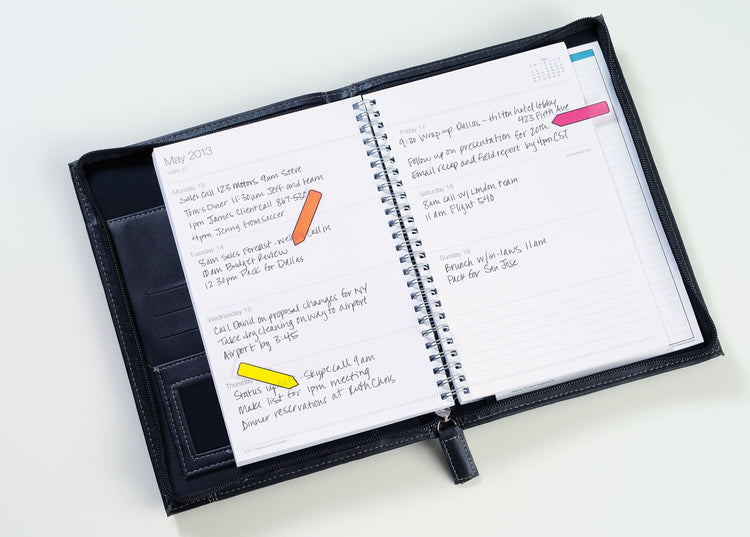 May 2013
week 20
Monday 13
Sales Call 123 motors 9am Steve
Tom's Diner 11:30am Jeff and team
1pm James Client Call 867-53
4pm Jenny from soccer
Tuesday 14
8am Sales Forecast - call in
10am Budget Review
12:30pm Pack for Dallas
Wednesday 15
Call David on proposal changes for NY
Take dry cleaning on way to airport
Airport by 3:45
Thursday
Status - Skype call 9am
Make list for 1pm meeting
Dinner reservations at Ruth Chris
Friday 17
9:30 Wrap up Dallas - Hilton hotel lobby
423 Firth Ave
Follow up on presentation for 20th
Email recap and field report by 4pm CST
Saturday 18
8am call w/ London team
11am Flight 540
Sunday 19
Brunch w/in-laws 11am
Pack for San Jose